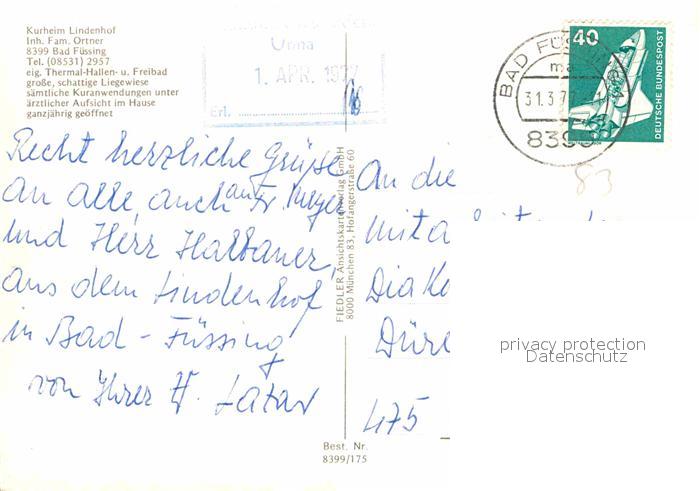 Kurheim Lindenhof
Inh. Fam. Ortner
8399 Bad Füssing
Tel. (08531) 2957
eig. Thermal-Hallen- u. Freibad
große, schattige Liegewiese
sämtliche Kuranwendungen unter
ärztlicher Aufsicht im Hause
ganzjährig geöffnet
Unna
1. APR. 1977
Erl.
BAD FÜSSING
31.3.77
8399
40
DEUTSCHE BUNDESPOST
83
Recht herzliche Grüße
an alle, auch an Fr. Meyer
und Herr Halbauer,
aus dem Lindenhof
in Bad-Füssing
von Ihrer H. Latar
FIEDLER Ansichtskartenverlag GmbH
8000 München 83, Hofangerstraße 60
An die
Mita
Diako
Düre
475
privacy protection
Datenschutz
Best. Nr.
8399/175